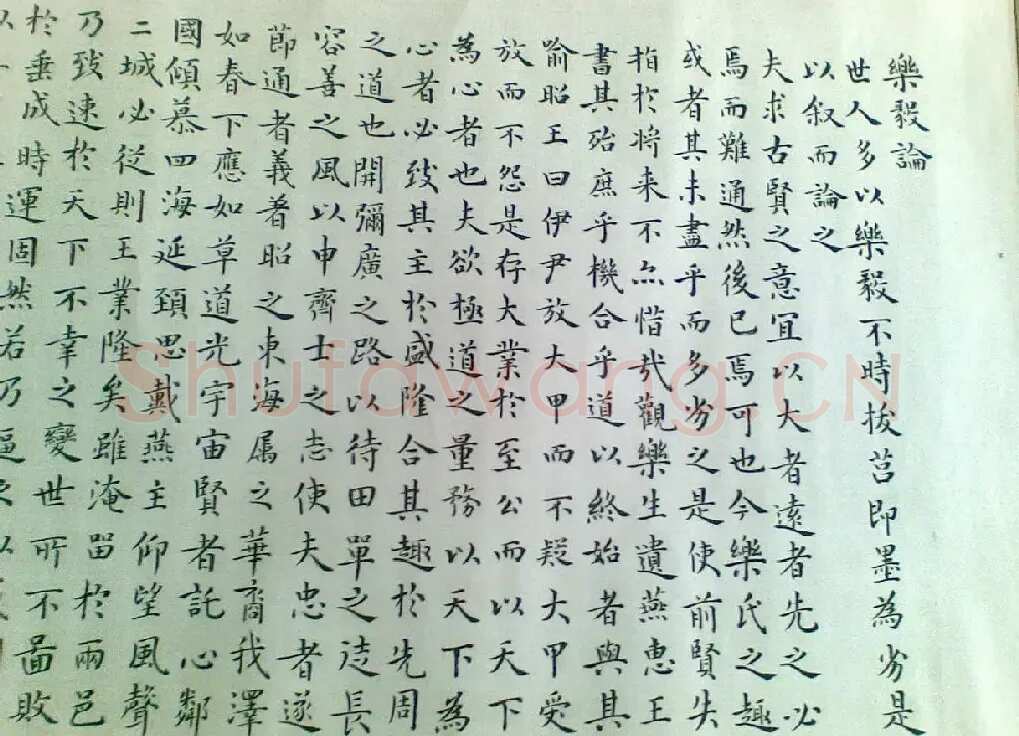 樂毅論
世人多以樂毅不時拔莒即墨為劣是
以叙而論之
夫求古賢之意宜以大者遠者先之必
焉而難通然後已焉可也今樂氏之趣
或者其未盡乎而多劣之是使前賢失
指於將来不亦惜哉觀樂生遺燕惠王
書其殆庶乎機合乎道以終始者與其
喻昭王曰伊尹放大甲而不疑大甲受
放而不怨是存大業於至公而以天下
為心者也夫欲極道之量務以天下為
心者必致其主於盛隆合其趣於先周
之道也開彌廣之路以待田單之徒長
容善之風以申齊士之志使夫忠者遂
節通者義著昭之東海属之華裔我澤
如春下應如草道光宇宙賢者託心鄰
國傾慕四海延頚思戴燕主仰望風聲
二城必從則王業隆矣雖淹留於兩邑
乃致速於天下不幸之變世所不圖敗
於垂成時運固然若乃逼之以
Shufawang.CN